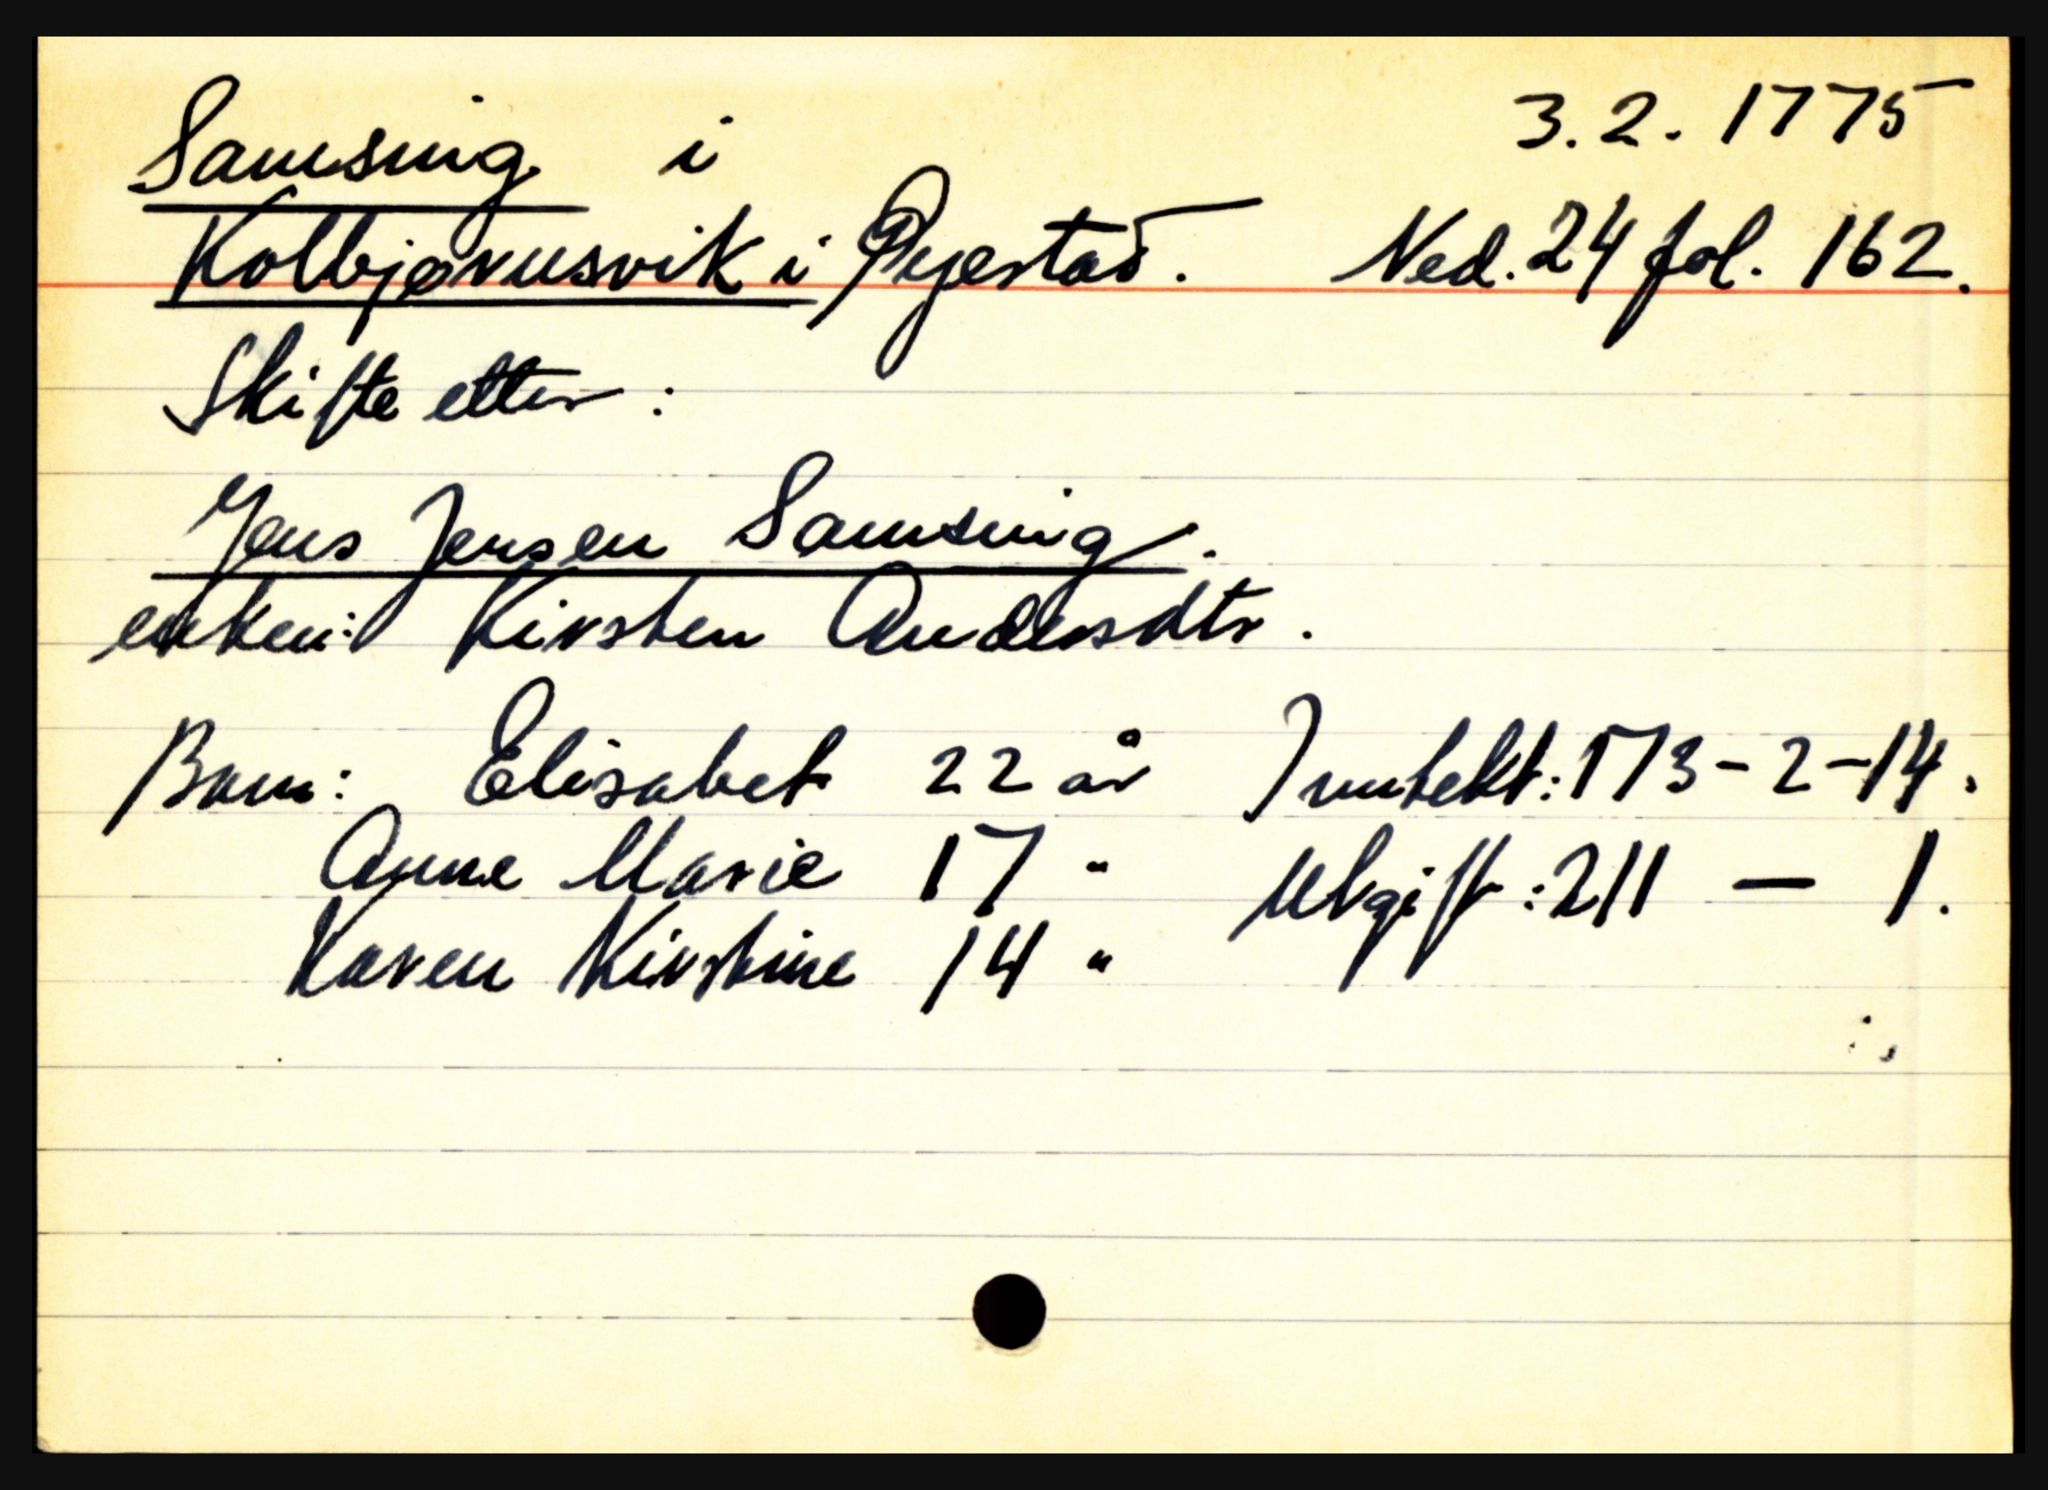 Samsing i 3.2. 1775
Kolbjørnsvik i Øyestad. Ned. 24 fol. 162.
Skifte etter:
Jens Jensen Samsing.
enken: Kirsten Andersdtr.
Barn: Elisabet 22 år Inntekt: 173-2-14.
Anne Marie 17 " Utgift: 211 — 1.
Karen Kirstine 14 "